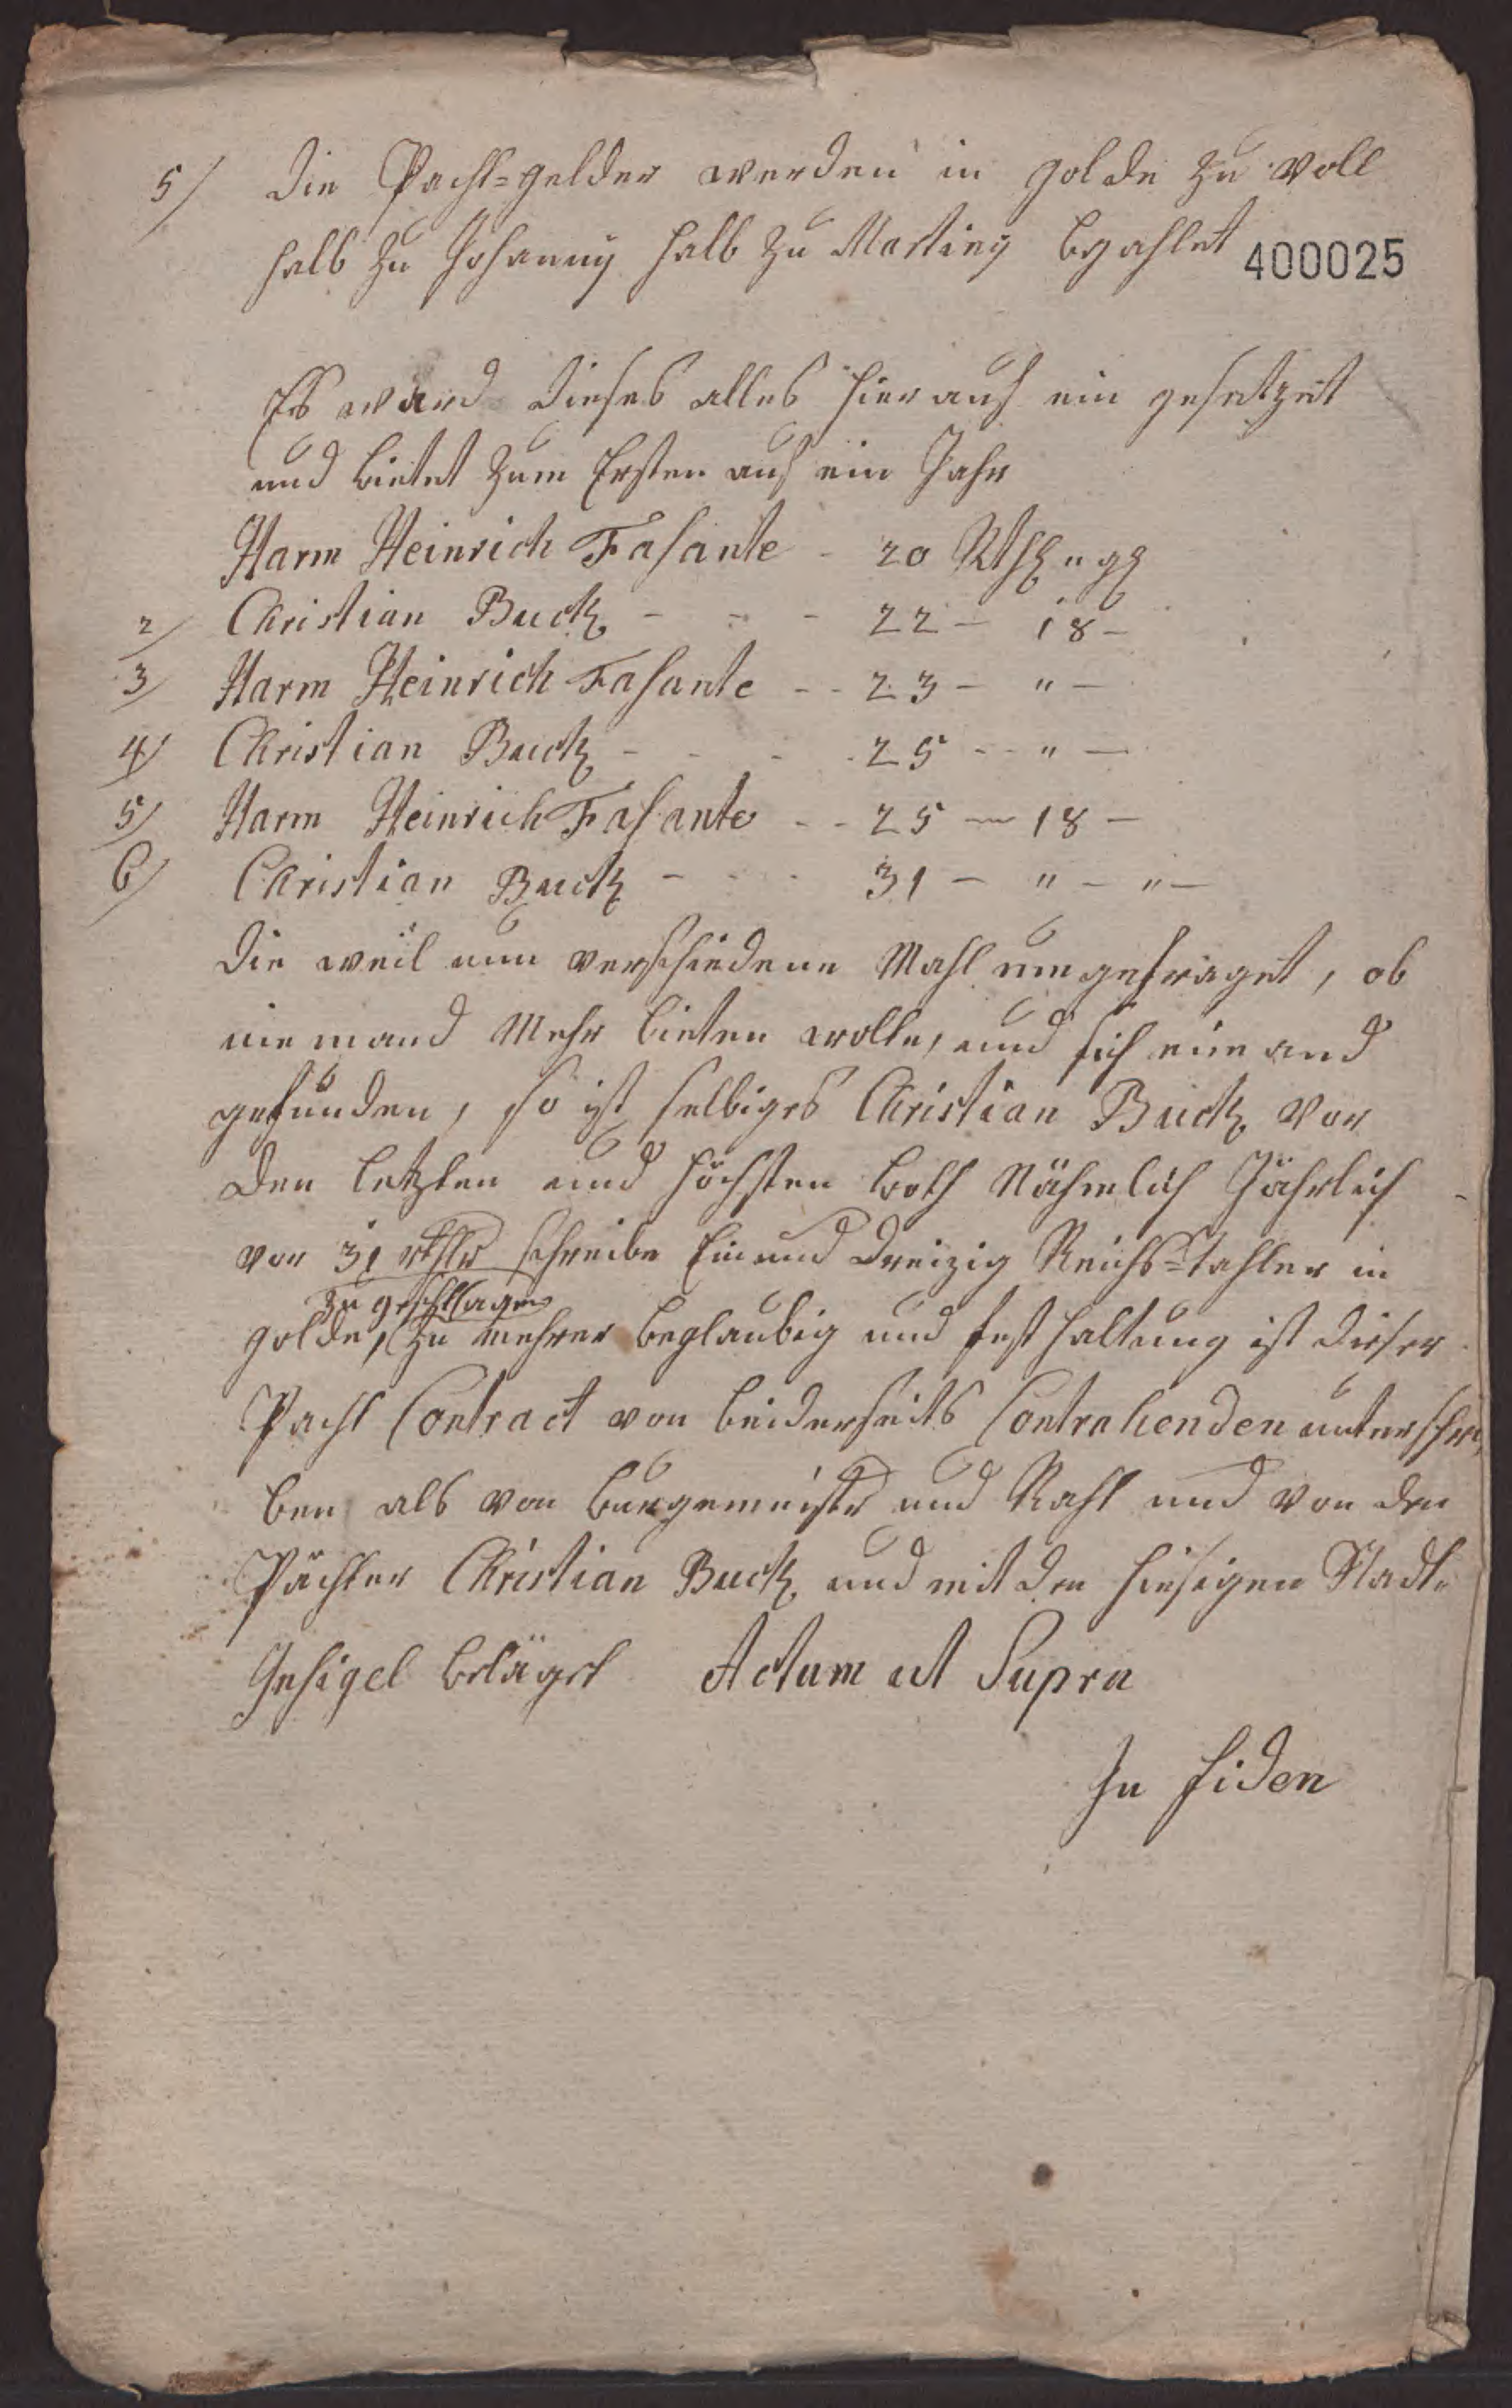 5/ Die Pacht=gelder werden in golde zu voll
halb zu Johanny halb zu Martiny bezahlet
400025
Es ward dieses alles hierauf ein gesetzet
und bietet zum Ersten auf ein Jahr
Harm Heinrich Fasante - 20 Rthl " gg
2/ Christian Buck - - - 22 - 18 -
3/ Harm Heinrich Fasante - - 23 - " -
4/ Christian Buck - - - 25 - - " -
5/ Harm Heinrich Fasante - - 25 - 18 -
6/ Christian Buck - - - 31 - " - " -
Die weil nun verschiedene Mahl umgefraget, ob
niemand Mehr bieten wolle, und sich niemand
gefunden, so ist selbiges Christian Buck vor
den letzten und höchsten both Nähmlich Jährlich
vor 31 rthlr schreibe Ein und Dreizig Reichs=tahler in
zu geschlagen
golde, Zu mehrer beglaubig und fest haltung ist dieser
Pacht Contract von beiderseits Contrahenden unterschrie
ben als von burgemeistr und Raht und von den
Pächter Christian Buck und mit den hiesigen Stadt=
Insigel beläget Actum ut Supra
In fiden